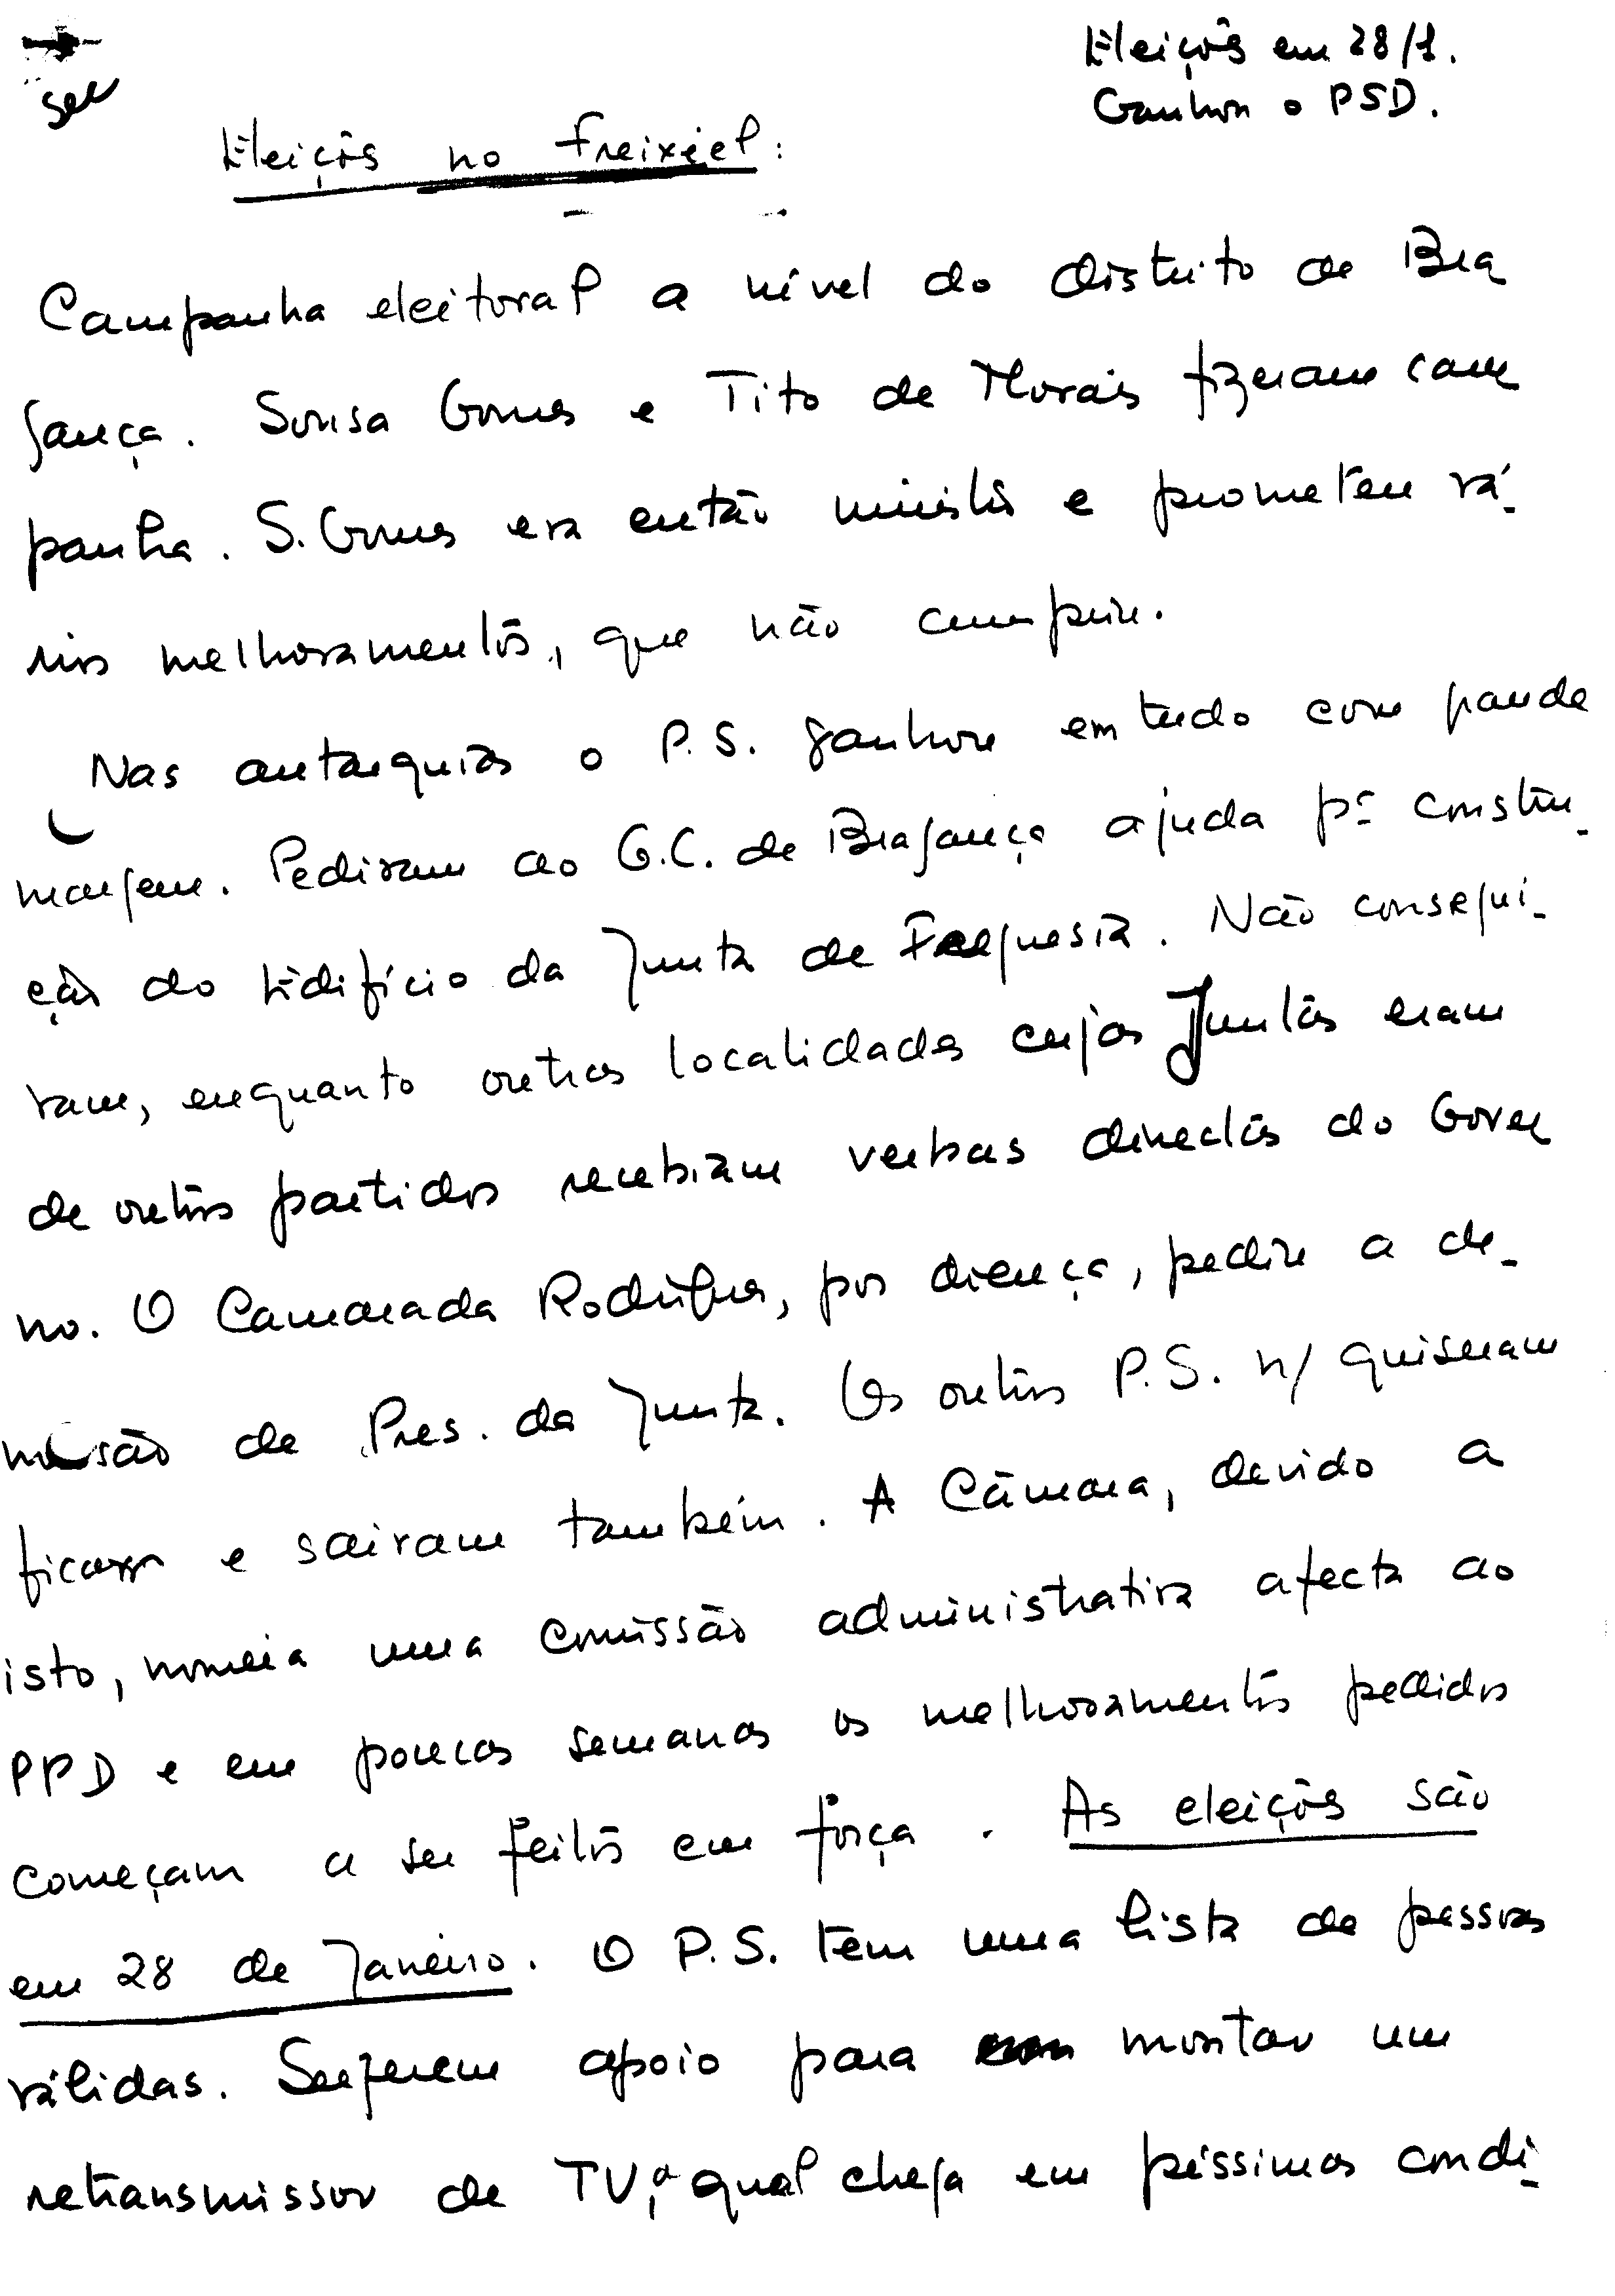 Eleições em 28/1.
Ganhou o PSD.
Eleições no Freixiel:
Campanha eleitoral a nível do distrito de Bra
gança. Sousa Gomes e Tito de Morais fizeram cam
panha. S. Gomes era então ministro e prometeu vá-
rios melhoramentos, que não cumpriu.
Nas autarquias o P.S. ganhou em tudo com grande
margem. Pediram ao G.C. de Bragança ajuda pª constru-
ção do Edifício da Junta de Freguesia. Não consegui-
ram, enquanto outras localidades cujas Juntas eram
de outros partidos recebiam verbas directas do Gover
no. O Camarada Rodrigues, por doença, pediu a de-
missão de Pres. da Junta. Os outros P.S. n/ quiseram
ficar e sairam também. A Câmara, devido a
isto, nomeia uma comissão administrativa afecta ao
PPD e em poucas semanas os melhoramentos pedidos
começam a ser feitos em força. As eleições são
em 28 de Janeiro. O P.S. tem uma lista de pessoas
válidas. Sugerem apoio para montar um
retransmissor de TV, a qual chega em péssimas condi-